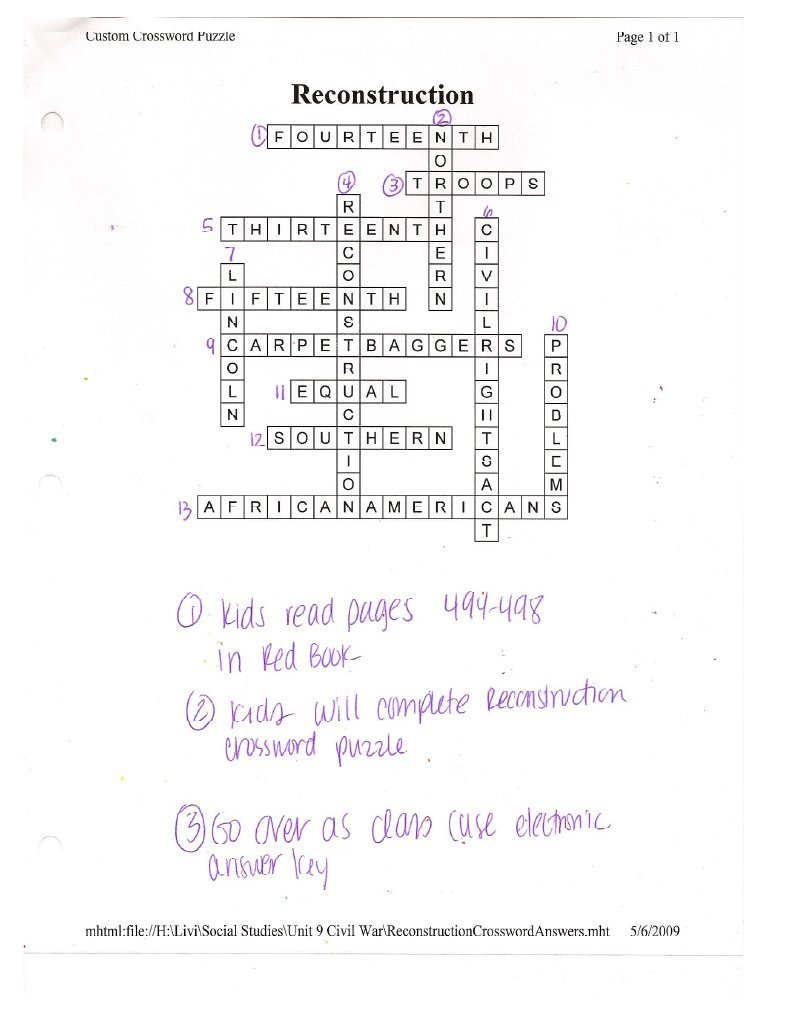 Custom Crossword Puzzle Page 1 of 1
Reconstruction
②
① FOURTEENTH
④ ③ TROOPS
6
5 THIRTEENTH
7
8 FIFTEENTH
10
9 CARPETBAGGERS
11 EQUAL
12 SOUTHERN
13 AFRICANAMERICANS
NORTHERN
RECONSTRUCTION
CIVILRIGHTSACT
LINCOLN
PROBLEMS
① kids read pages 494-498
in Red Book
② kids will complete Reconstruction
crossword puzzle.
③ Go over as class (use electronic
answer key
mhtml:file://H:\Livi\Social Studies\Unit 9 Civil War\ReconstructionCrosswordAnswers.mht 5/6/2009